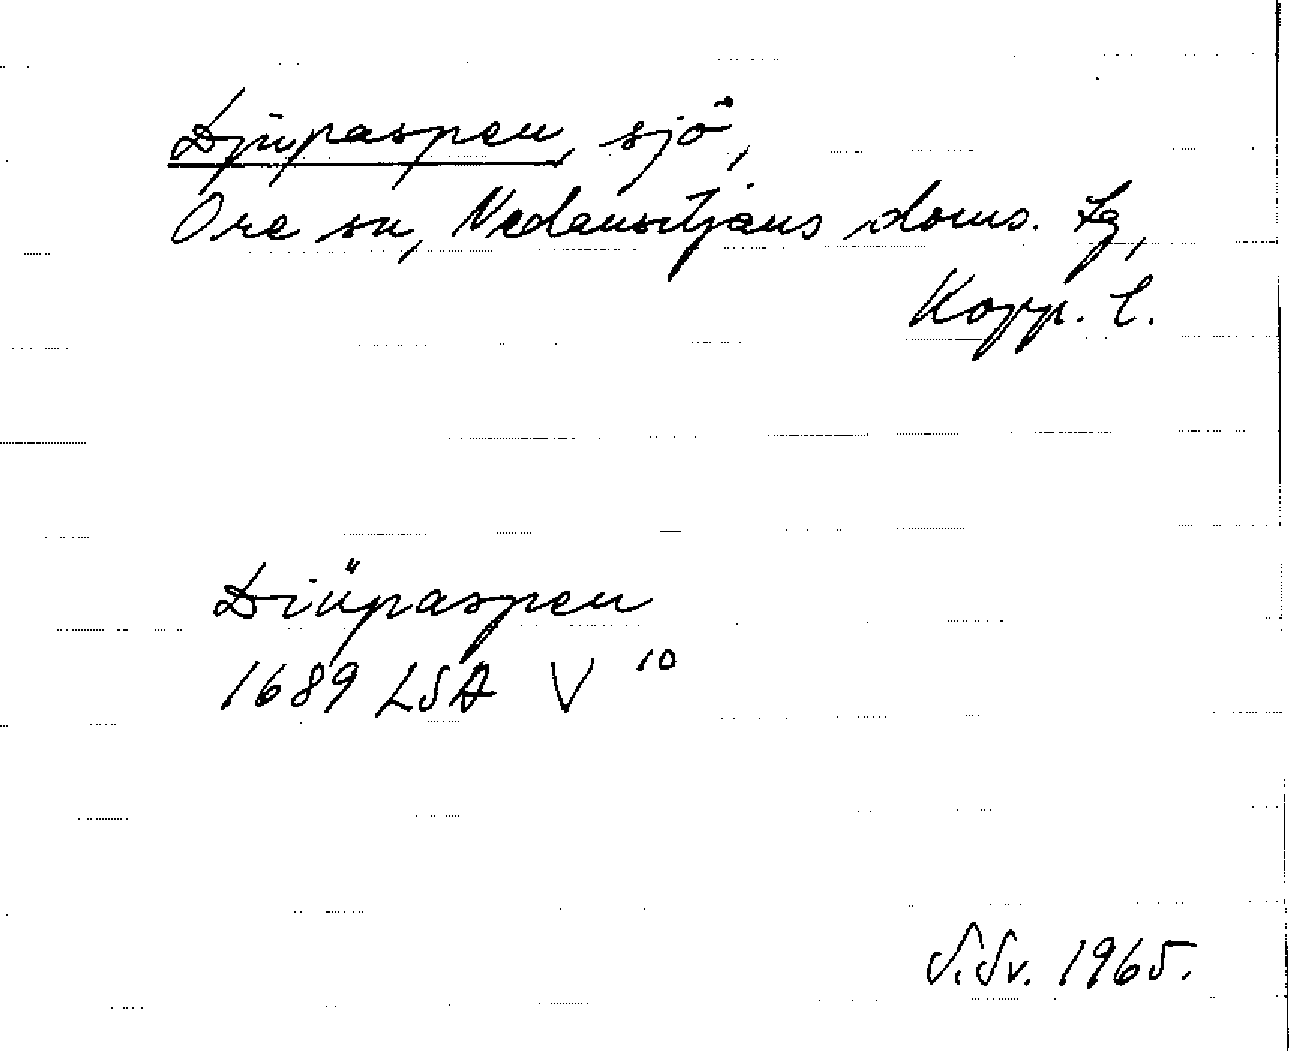 Djupaspen, sjö,
Ore sn, Nedansiljans doms. tg,
Kopp. l.
Diüpaspen
1689 LSA V 10
S.Sv. 1965.